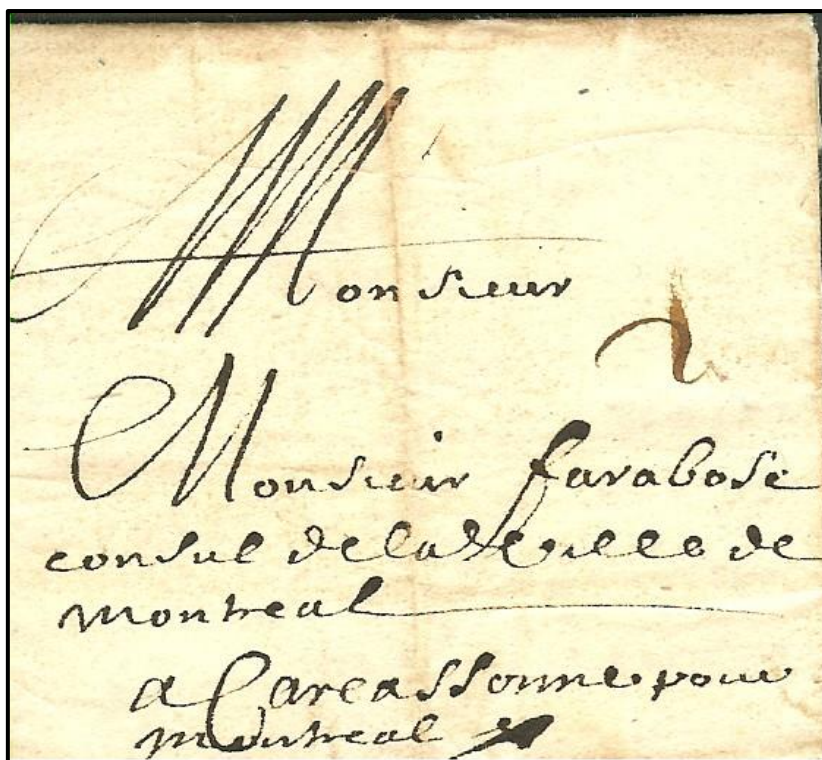 Monsieur
2
Monsieur farabose
consul de la ville de
montreal
a Carcassonne pour
montreal